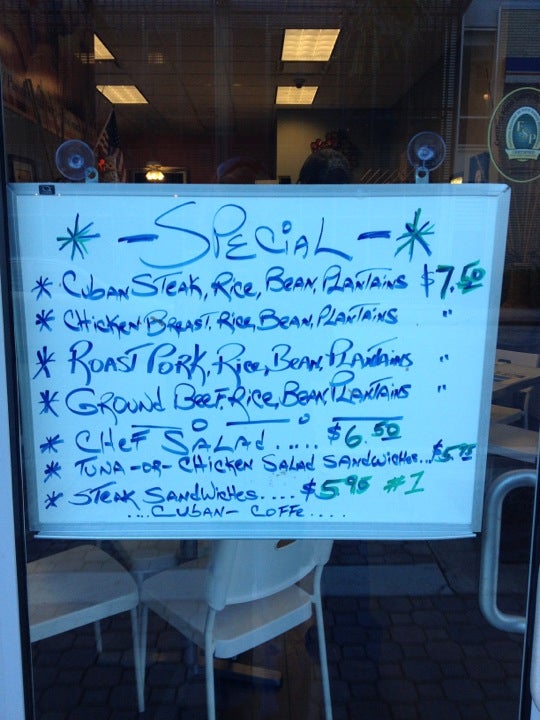 * - SPECIAL - *
* CUBAN STEAK, RICE, BEAN, PLANTAINS $7.50
* CHICKEN BREAST, RICE, BEAN, PLANTAINS "
* ROAST PORK, RICE, BEAN, PLANTAINS "
* GROUND BEEF, RICE, BEAN, PLANTAINS "
* CHEF SALAD ..... $6.50
* TUNA -OR- CHICKEN SALAD SANDWICHES...
* STEAK SANDWICHES.... $5.95 #1
....CUBAN- COFFE....